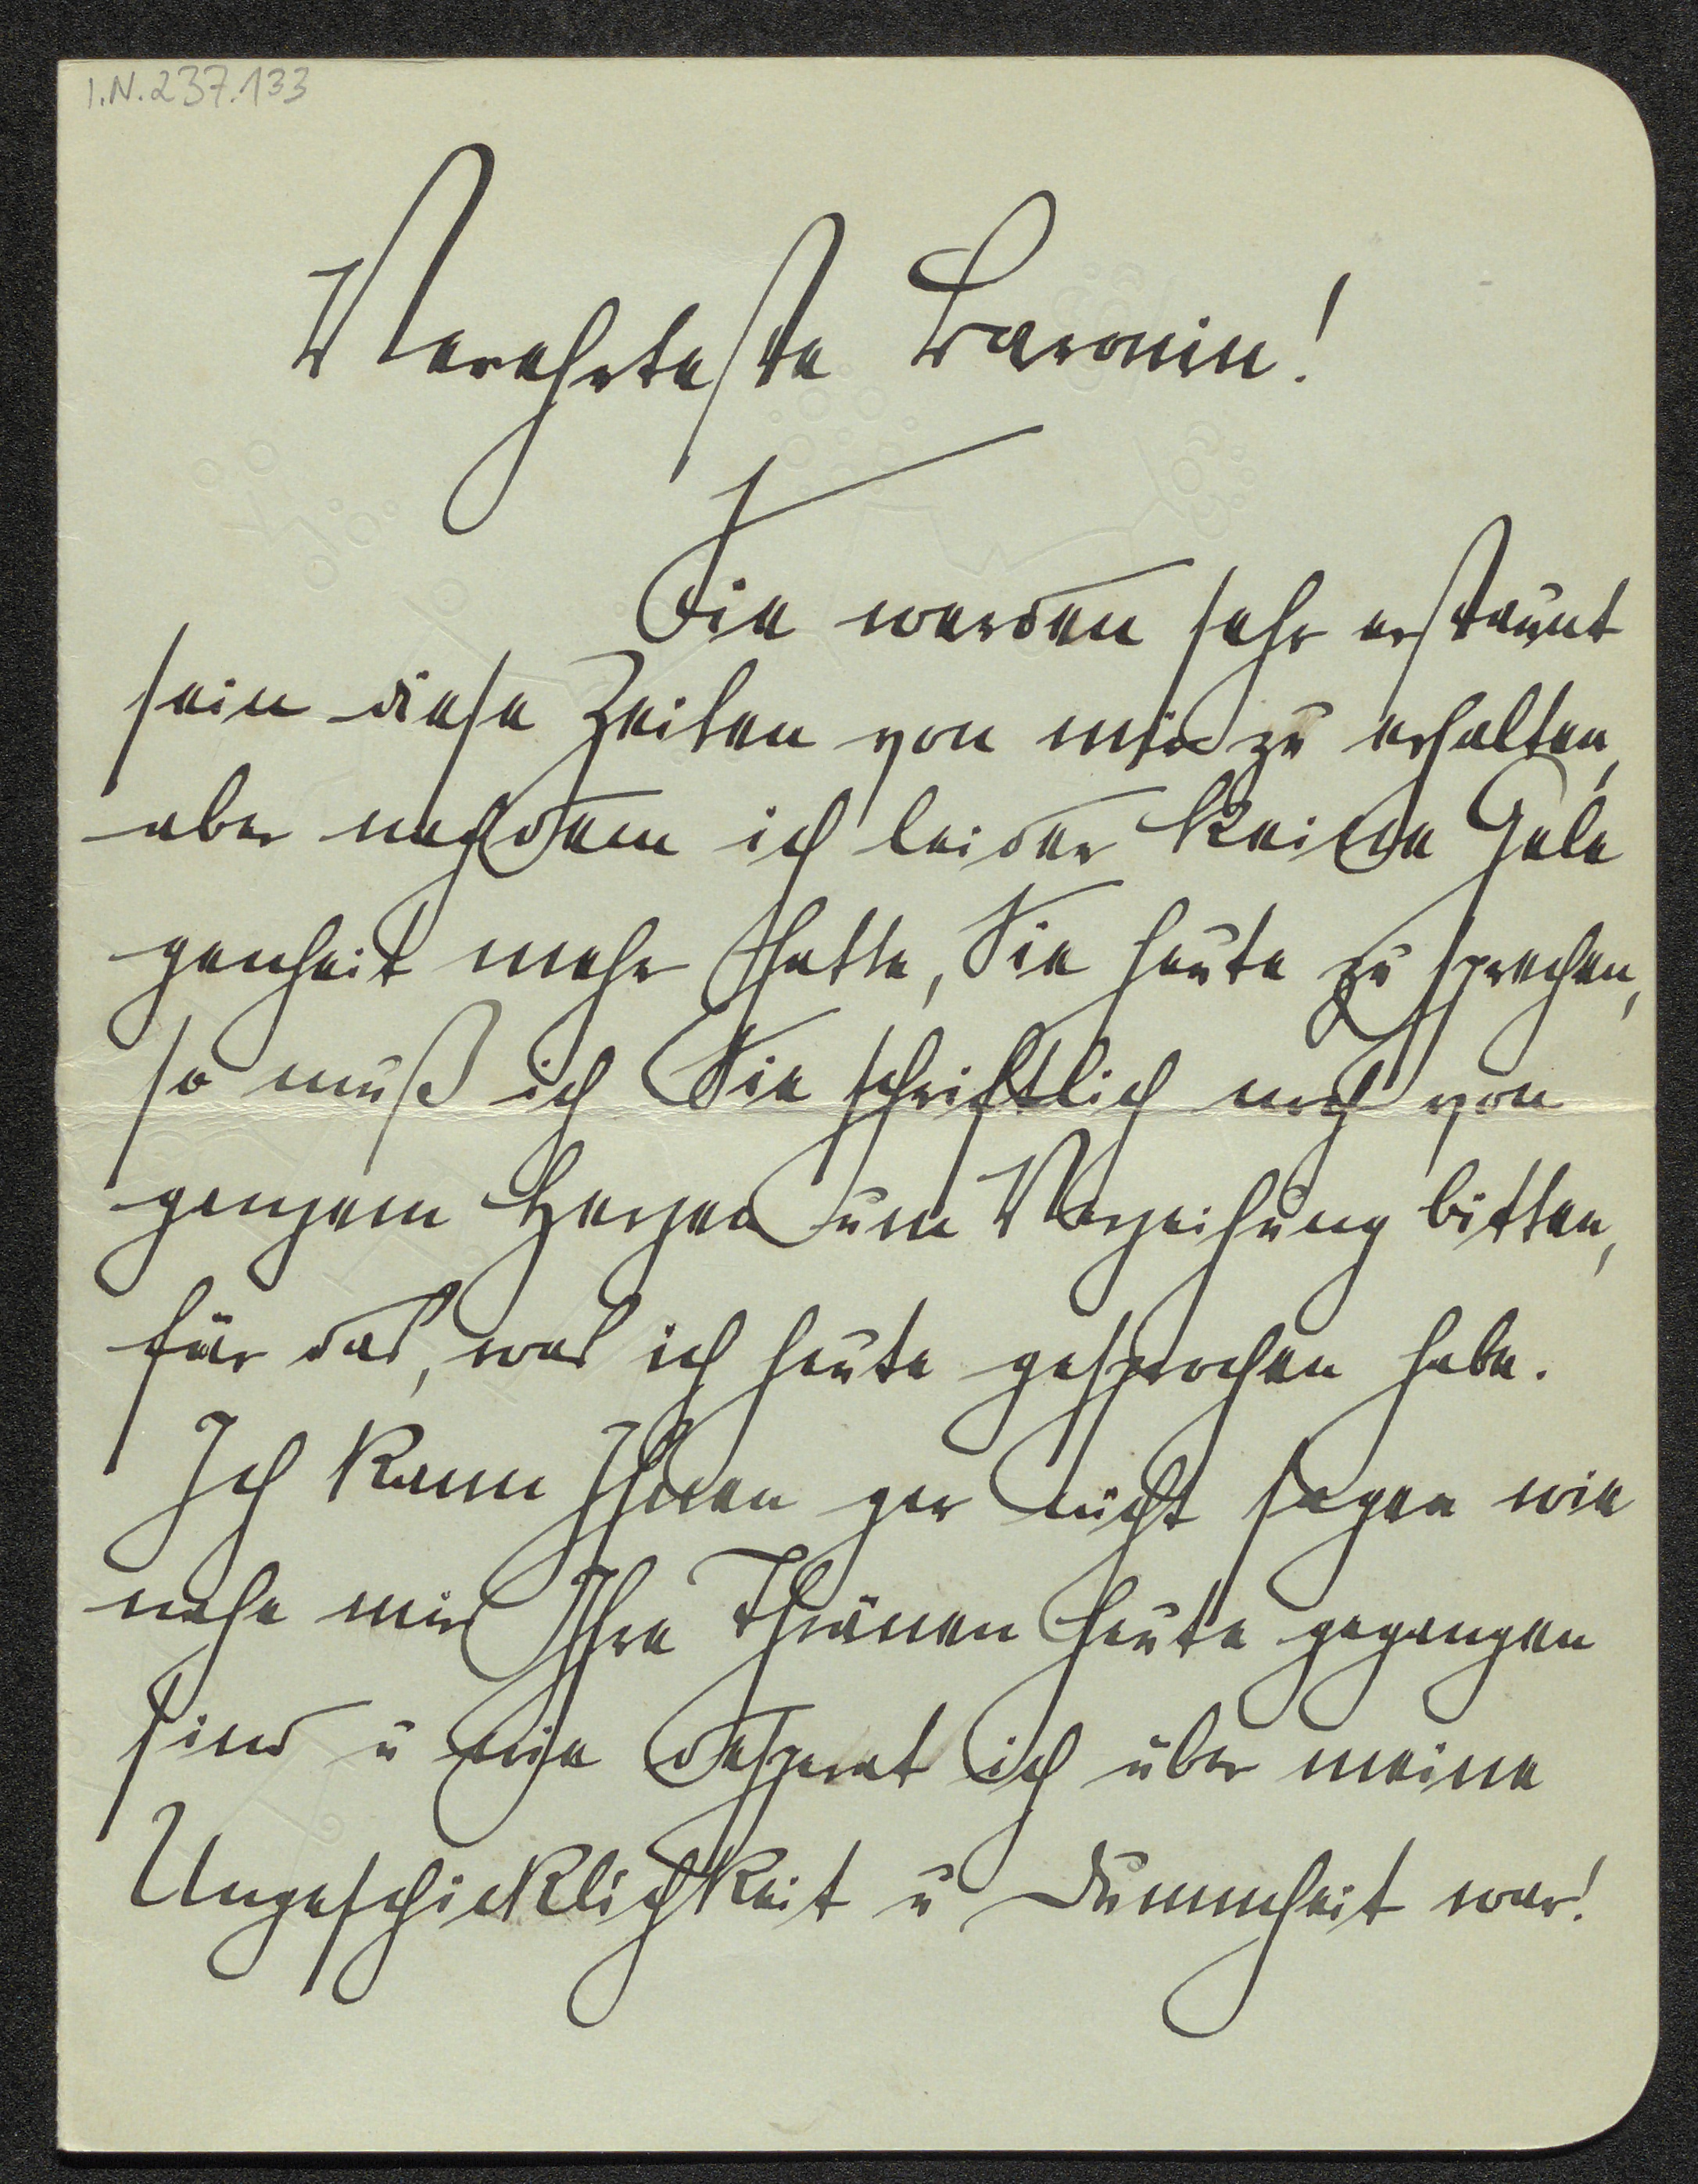 I.N. 237.133
Verehrteste Baronin!
Sie werden sehr erstaunt
sein diese Zeilen von mir zu erhalten,
aber nachdem ich leider keine Gele
genheit mehr hatte, Sie heute zu sprechen,
so muß ich Sie schriftlich noch von
ganzem Herzen um Verzeihung bitten,
für das, was ich heute gesprochen habe.
Ich kann Ihnen gar nicht sagen wie
nahe mir Ihre Thränen heute gegangen
sind u wie desperat ich über meine
Ungeschicklichkeit u Dummheit war!